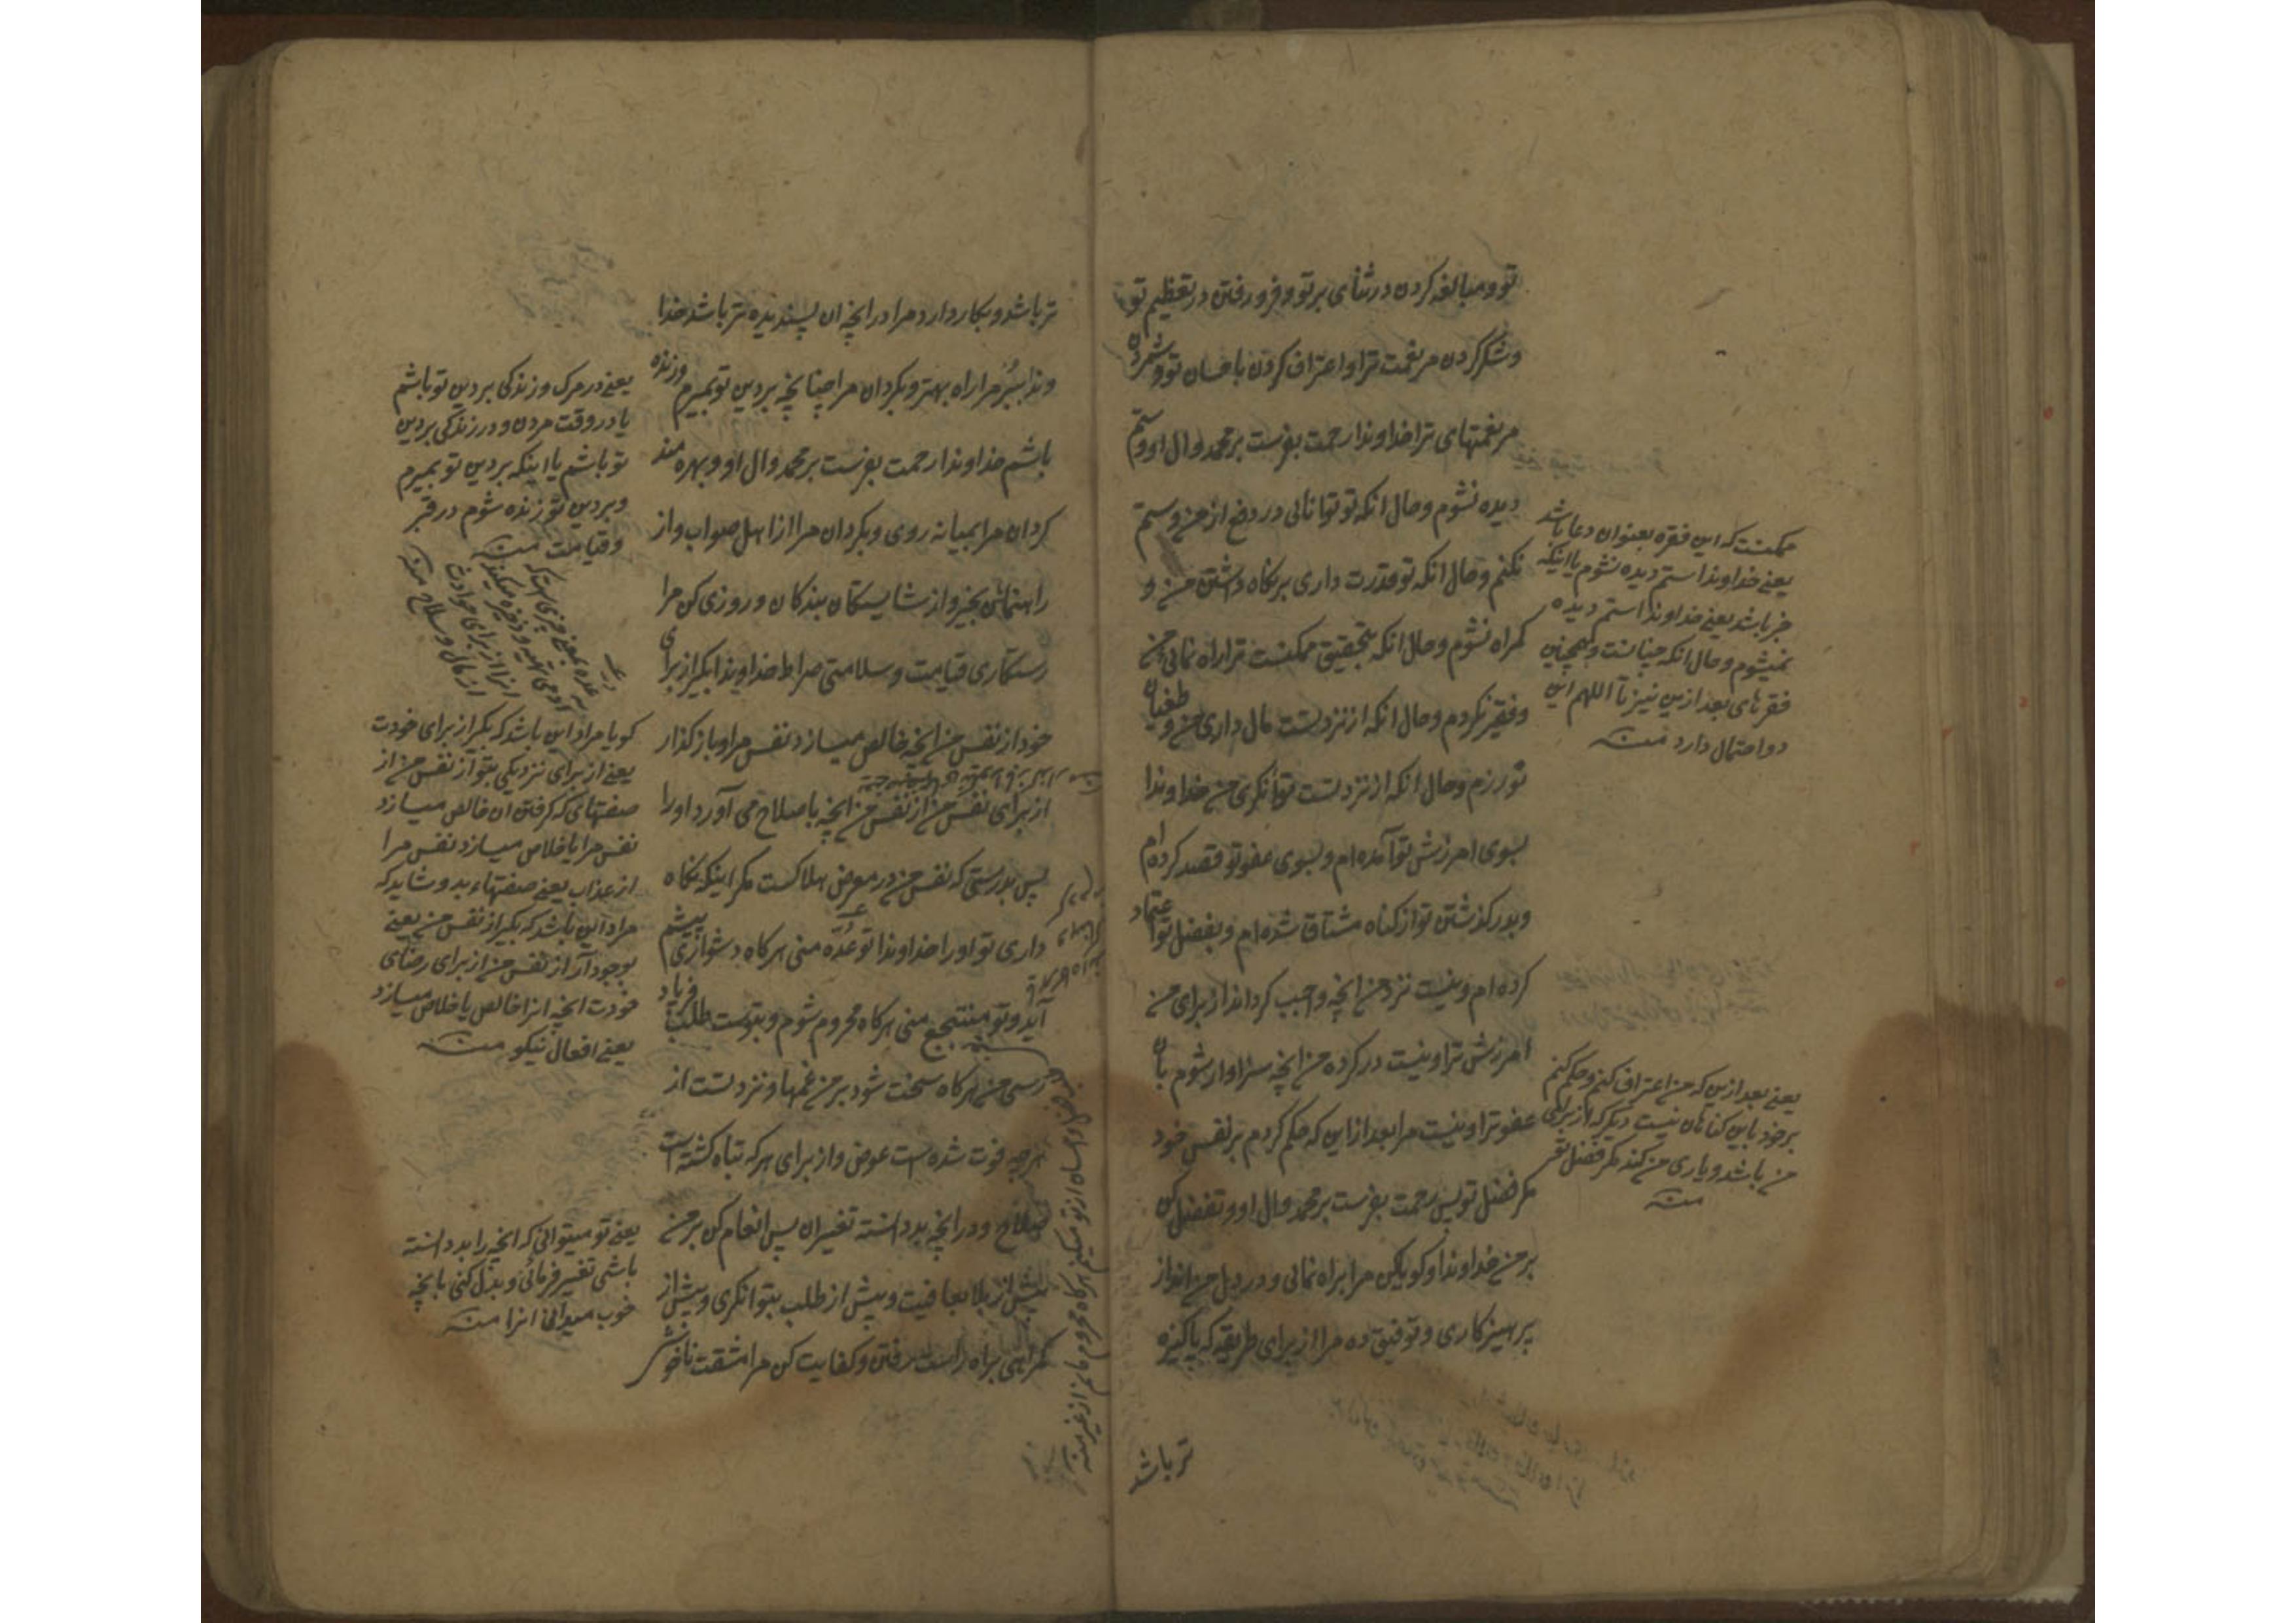 تو و مبالغه کردن در ثنای بر تو و فرو رفتن در تعظیم تو
و شکر کردن مر نعمت ترا و اعتراف کردن باحسان تو و شمردن
مر نعمتهای ترا خداوندا رحمت بفرست بر محمد و ال او و ستم
دیده نشوم و حال انکه تو توانائی در دفع از من و ستم
نکنم و حال انکه تو قدرت داری بر نکاه داشتن من و
کمراه نشوم و حال انکه بتحقیق ممکنست ترا راه نمائی من
و فقیر نکردم و حال انکه از نزد تست مال داری من و طغیان
نورزم و حال انکه از نزد تست توانکری من خداوندا
بسوی امرزش تو آمده ام و بسوی عفو تو قصد کرده ام
و بدر کذشتن تو از کناه مشتاق شده ام و بفضل تو اعتماد
کرده ام و نیست نزد من انچه واجب کرداند از برای من
امرزش ترا و نیست در کرده من انچه سزاوار شوم بان
عفو ترا و نیست مرا بعد از این که حکم کردم بر نفس خود
مکر فضل تو پس رحمت بفرست بر محمد و ال او و تفضل کن
بر من خداوندا و کویا کن مرا براه نمائی و در دل من انداز
پرهیزکاری و توفیق ده مرا از برای طریقه که پاکیزه
تر باشد
ممکنست که این فقره بعنوان دعا باشد
یعنی خداوندا ستم دیده نشوم یا اینکه
خبر باشد یعنی خداوندا ستم دیده
نمیشوم و حال انکه چنانست و همچنین
فقرهای بعد ازین نیز تا اللهم این
دو احتمال دارد منه
یعنی بعد ازین که من اعتراف کنم و حکم کنم
بر خود باین کناهان نیست دیکر که از برای
من باشد و یاری من کند مکر فضل تو
منه
تر باشد و بکار دارد مرا در انچه ان پسندیده تر باشد خدا
وندا ببر مرا راه بهتر و بکردان مرا چنانچه بر دین تو بمیرم و زنده
باشم خداوندا رحمت بفرست بر محمد و ال او و بهره مند
کردان مرا بمیانه روی و بکردان مرا از اهل صواب و از
راهنمائی بخیر و از شایستکان بندکان و روزی کن مرا
رستکاری قیامت و سلامتی صراط خداوندا بکیر از برای
خود از نفس من انچه خالص میسازد نفس مرا و باز کذار
از برای نفس من از نفس من انچه باصلاح می آورد او را
پس بدرستی که نفس من در معرض هلاکست مکر اینکه نکاه
داری تو او را خداوندا تو عُدّه منی هر کاه دشواری پیشم
آید و تو منتجع منی هر کاه محروم شوم و بتوست طلب فریاد
رسی من هر کاه سخت شود بر من غمها و نزد تست از
هر چه فوت شده است عوض و از برای هر که تباه کشته است
صلاح و در انچه بد دانستهٔ تغییر ان پس انعام کن بر من
پیش از بلا بعافیت و پیش از طلب بتوانکری و پیش از
کمراهی براه راست رفتن و کفایت کن مرا مشقت ناخوش
یعنی در مرک و زندکی بر دین تو باشم
یا در وقت مردن و در زندکی بر دین
تو باشم یا اینکه بر دین تو بمیرم
و بر دین تو زنده شوم در قبر
و قیامت منه
عُدّه بمعنی چیزی است که
آدمی تهیه و ذخیره میکند
انرا از برای حوادث
از مال و سلاح منه
کویا مراد این باشد که بکیر از برای خودت
یعنی از برای نزدیکی بتو از نفس من از
صفتهائی که کرفتن ان خالص میسازد
نفس مرا یا خلاص میسازد نفس مرا
از عذاب یعنی صفتهاء بد و شاید که
مراد این باشد که بکیر از نفس من یعنی
بوجود آر از نفس من از برای رضای
خودت انچه انرا خالص یا خلاص میسازد
یعنی افعال نیکو منه
یعنی تو میتوانی که انچه را بد دانسته
باشی تغییر فرمائی و بدل کنی بانچه
خوب میدانی انرا منه
احسان از تو میکنم هر کاه محروم مانم از غیر منه